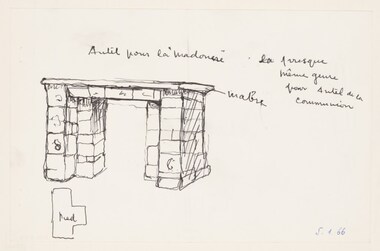 Autel pour la Madonne
- la presque
même genre
pour Autel de la
communion
marbre
Pied
5.1.66